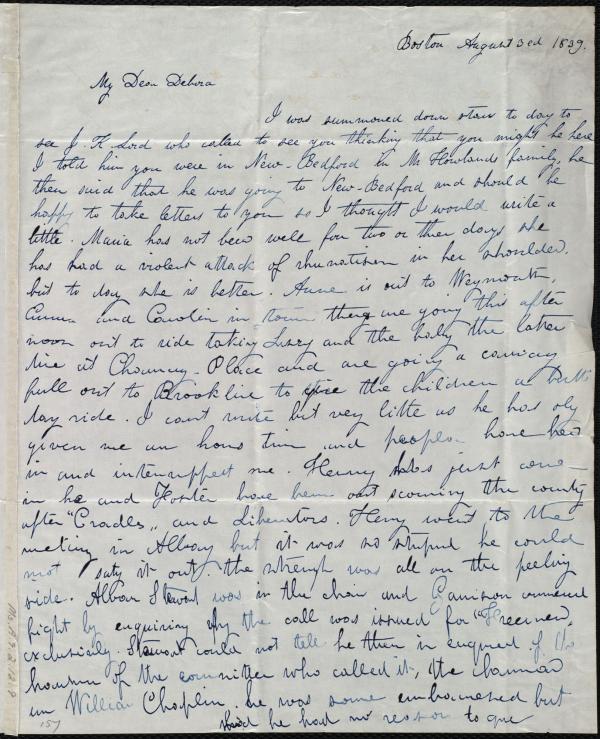 Boston August 3ed 1839.
My Dear Debora
I was summoned down stair to day to
see J. K. Lord who called to see you thinking that you might be here
I told him you were in New-Bedford in Mr Howlands family, he
then said that he was going to New-Bedford and should be
happy to take letters to you so I thought I would write a
little. Maria has not been well for two or three days she
has had a violent attack of rhumatism in her shoulder.
but to day she is better. Anne is out to Weymouth,
Emma and Carolin in town they are going this after
noon out to ride taking Lucy and the baby the latter
live at Chauncy-Place and are going a carriag
full out to Brookline to give the children a
day ride. I cant write but very little as he has oly
given me an hours tim and people have bee
in and interruppted me. Henry has just come
in he and Foster have been out scouring the county
after "Cradles" and Liberators. Henry went to the
meeting in Albany but it was so stupid he could
not saty it out. the strength was all on the peeling
side. Alvan Stewart was in the chair and Garrison commenced
fight by enquiring why the call was issued for "Freemen,
exclusively. Stewart could not tell he then in enqured of the
chairman of the committee who called it, the chairman
um William Chaplin. he was some embarrassed but
said he had no reason to give
157